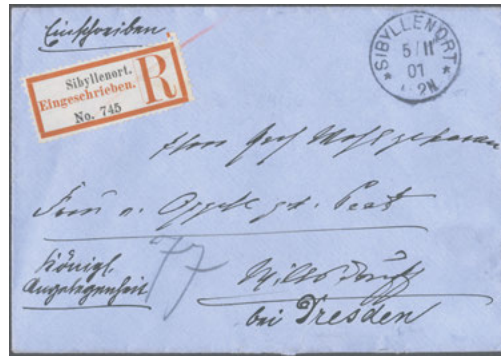 Einschreiben
Sibyllenort.
Eingeschrieben.
No. 745
R
SIBYLLENORT
5/11
07
2N
Hochwohlgeboren
Frau v.
77
Königl.
Angelegenheit
Wilsdruff
bei Dresden